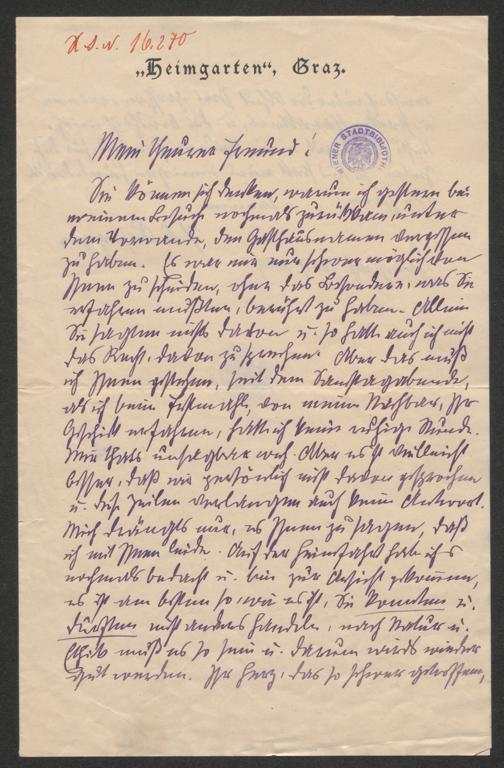 H.I.N. 16.270
„Heimgarten“, Graz.
WIENER STADTBIBLIOTHEK
Mein theurer Freund!
Sie können sich denken, warum ich gestern bei
meinem Besuche nochmals zurückkam, unter
dem Vorwande, den Gasthausnamen vergessen
zu haben. Es war mir nur schwer möglich von
Ihnen zu scheiden, ohne das Besondere, was Sie
erfahren mußten, berührt zu haben. Allein
Sie sagten nichts davon u. so hatte auch ich nicht
das Recht, davon zu sprechen. Aber das muß
ich Ihnen gestehen, seit dem Samstagabende,
als ich beim Festmahle, von meinem Nachbar, Ihr
Geschick erfahren, hatte ich keine ruhige Stunde.
Mir thats unsagbar weh. Aber es ist vielleicht
besser, daß wir persönlich nicht davon gesprochen
u. diese Zeilen verlangen auch keine Antwort.
Mich drängts nur, es Ihnen zu sagen, daß
ich mit Ihnen leide. Auf der Heimfahrt hab ich's
nochmals bedacht u. bin zur Ansicht gekommen,
es ist am besten so, wie es ist, Sie konnten u.
durften nicht anders handeln, nach Natur u.
Ethik muß es so sein u. darum wirds wieder
gut werden. Ihr Herz, das so schwer getroffene,